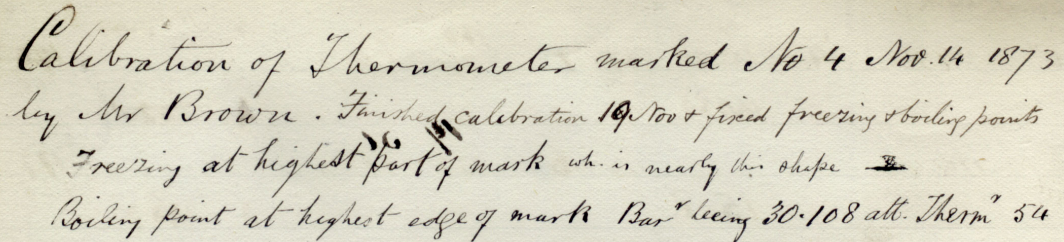 Calibration of Thermometer marked No 4 Nov. 14 1873
by Mr Brown. Finished calibration 19 Nov & fixed freezing & boiling points
Freezing at highest part of mark wh. is nearly this shape
Boiling point at highest edge of mark Barr being 30.108 att. Thermr 54